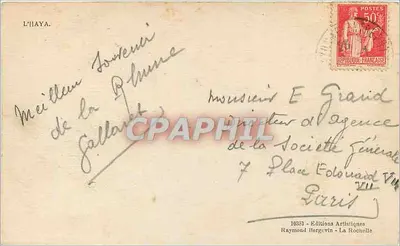 L'HAYA.
POSTES
50c
Meilleur souvenir
de la Rhune
Monsieur E Grand
directeur d'agence
de la Société Générale
7 Place Edouard VII
VII
Paris
CPAPHIL
Editions Artistiques
Raymond Bergevin - La Rochelle